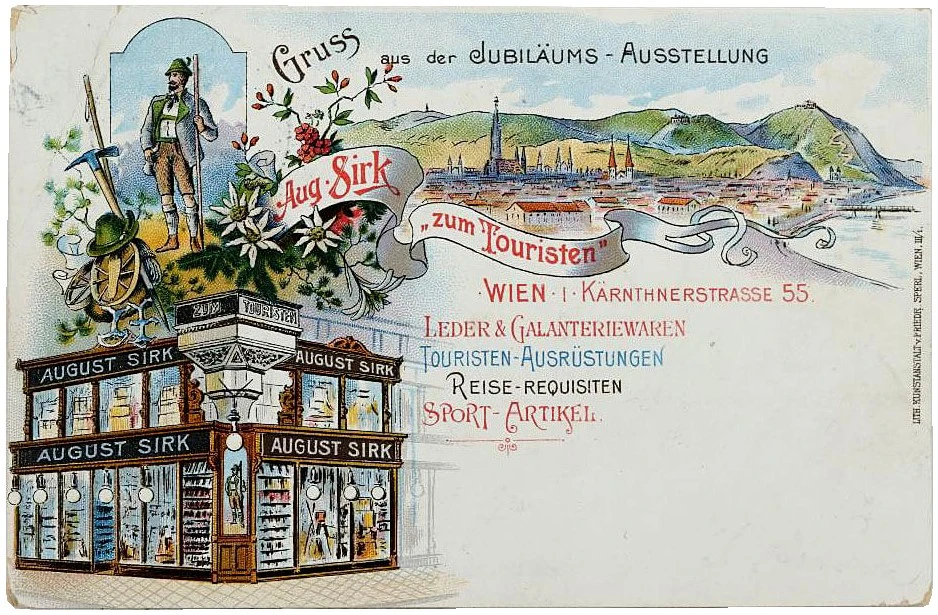 Gruss aus der JUBILÄUMS-AUSSTELLUNG
Aug. Sirk
"zum Touristen"
·WIEN·I·KÄRNTHNERSTRASSE 55.
LEDER & GALANTERIEWAREN
TOURISTEN-AUSRÜSTUNGEN
REISE-REQUISITEN
SPORT-ARTIKEL.
ZUM TOURISTEN
AUGUST SIRK
AUGUST SIRK
AUGUST SIRK
AUGUST SIRK
LITH. KUNSTANSTALT v. FRIEDR. SPERL, WIEN, III/1.